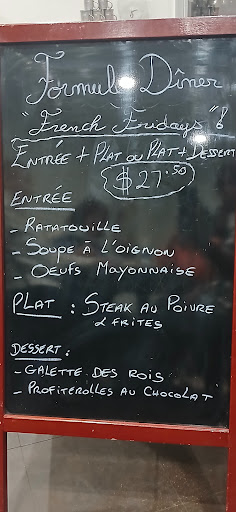 Formule Dîner
"French Fridays"!
Entrée + Plat ou Plat + Dessert
$27.50
Entrée
- Ratatouille
- Soupe à l'oignon
- Oeufs Mayonnaise
Plat : Steak au Poivre
& frites
Dessert :
- Galette des Rois
- Profiterolles au Chocolat